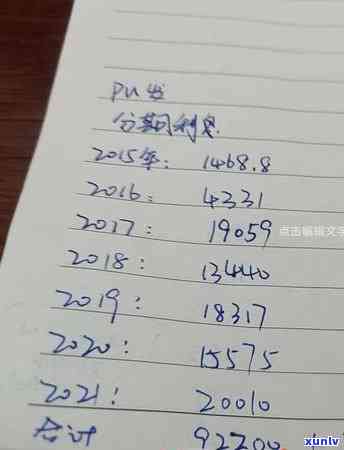 PU发
分期利息
2015年: 1468.8
2016: 4331
2017: 19059
点击编辑文字
2018: 13440
2019: 18317
2020: 15575
2021: 20010
合计 92200.
xunlv